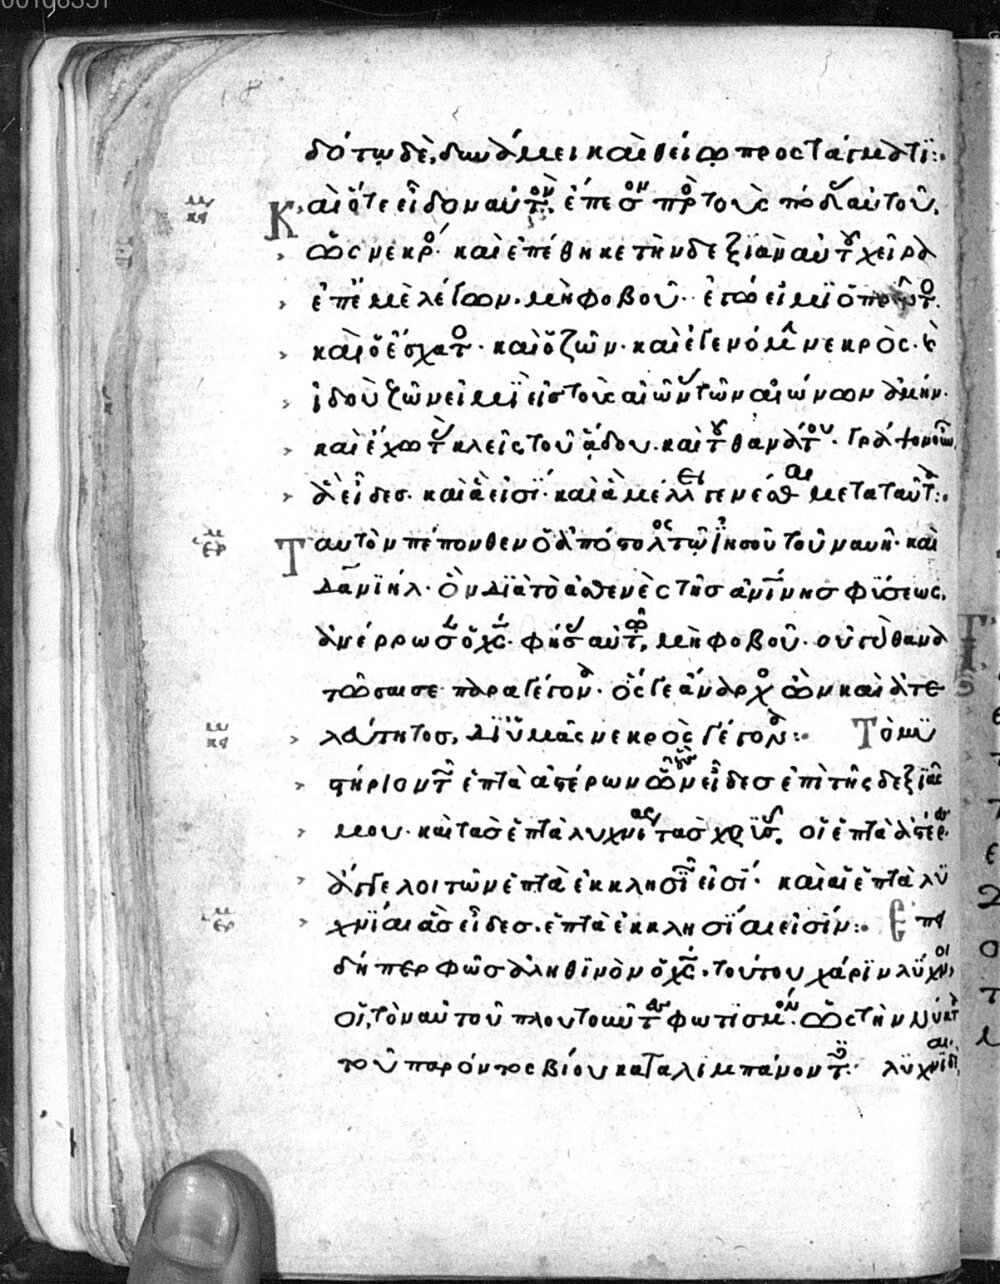 δότω δὲ, δυνάμει καὶ θείω προστάγματϊ:
κει Καὶ ὅτε εἶδον αὐτὸν, ἔπεσον πρὸς τοὺς πόδας αὐτοῦ,
ὡς νεκρός· καὶ ἐπέθηκε τὴν δεξϊὰν αὐτοῦ χεῖρα
ἐπ' ἐμὲ λέγων· μὴ φοβοῦ· ἐγώ εἰμϊ ὁ πρῶτος
καὶ ὁ ἔσχατος· καὶ ὁ ζῶν· καὶ ἐγενόμην νεκρὸς· καὶ
ἰδοὺ ζῶν εἰμϊ εἰς τοὺς αἰῶνας τῶν αἰώνων ἀμήν·
καὶ ἔχω τὰς κλεῖς τοῦ ἅδου· καὶ τοῦ θανάτου· γράψον οὖν,
ἃ εἶδες· καὶ ἃ εἰσϊ· καὶ ἃ μέλλει γενέσθαι μετα ταῦτα:
ερ Ταυτὸν πέπονθεν ὁ ἀπόστολος τῶ Ἰησοῦ τοῦ ναυῆ· καὶ
Δανϊήλ· ὃν δϊὰ τὸ ἀσθενὲς τῆς ἀνθρωπίνης φϋσεως,
ἀνέρρωσεν ὁ χς· φήσας αὐτῶ, μὴ φοβοῦ· οὐ γὰρ θανα
τῶσαι σε παραγέγονα· ὅς γε ἄναρχος ὢν καὶ ἀτε
λεύτητος, δι' ὑμᾶς νεκρὸς γέγονα: Τὸ μυ
στήριον τῶν ἑπτὰ ἀστέρων ὧν εἶδες ἐπὶ τῆς δεξϊᾶς
μου· καὶ τὰς ἑπτὰ λυχνίας τὰς χρϋσᾶς. οἱ ἑπτὰ ἀστέρες,
ἄγγελοι τῶν ἑπτὰ ἐκκλησϊῶν εἰσί· καὶ αἱ ἑπτὰ λϋ
χνϊαι ἃς εἶδες, ἑπτὰ ἐκκλησϊαι εἰσίν: Ἐπει
δήπερ φῶς ἀληθϊνὸν ὁ χς· τούτου χάρϊν λϋχνοι,
οἱ τὸν αὐτοῦ πλουτοῦντες φωτϊσμόν· ὡς τὴν νύκτα
τοῦ παρόντος βίου καταλιμπάνοντες· λϋχνϊαι,